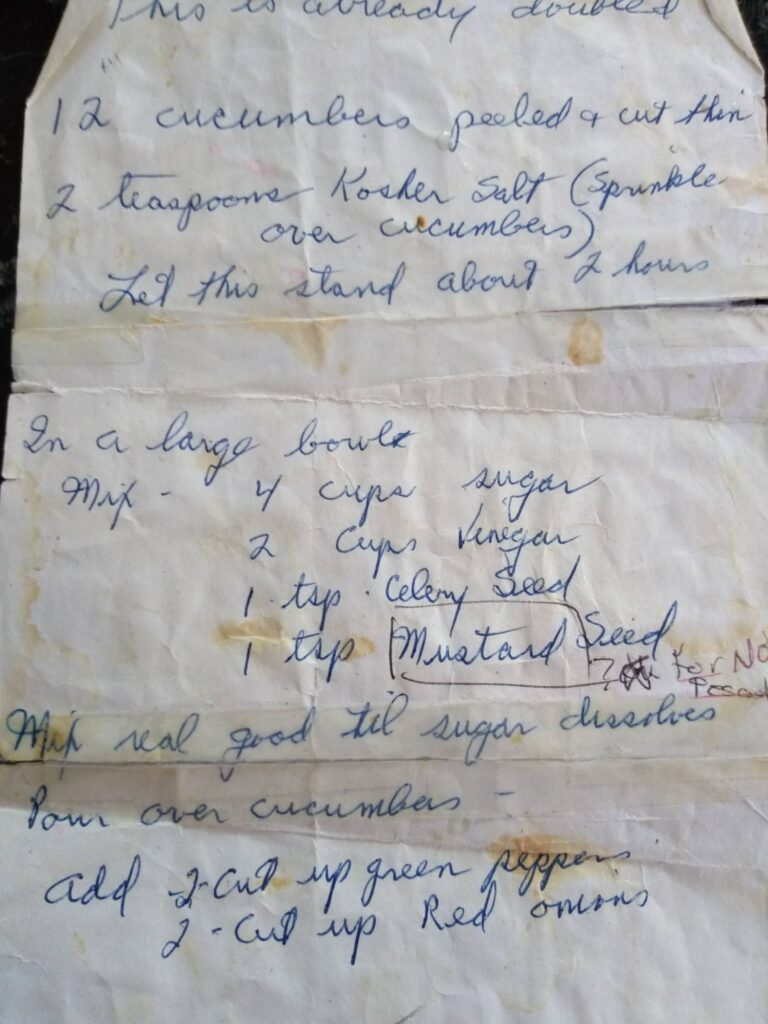 This is already doubled
12 cucumbers peeled & cut thin
2 teaspoons Kosher Salt (Sprinkle
over cucumbers)
Let this stand about 2 hours
In a large bowl
Mix - 4 cups sugar
2 Cups Vinegar
1 tsp. Celery Seed
1 tsp Mustard Seed
? For No
Mix real good til sugar dissolves
Pour over cucumbers -
add -2-Cut up green peppers
2-Cut up Red onions